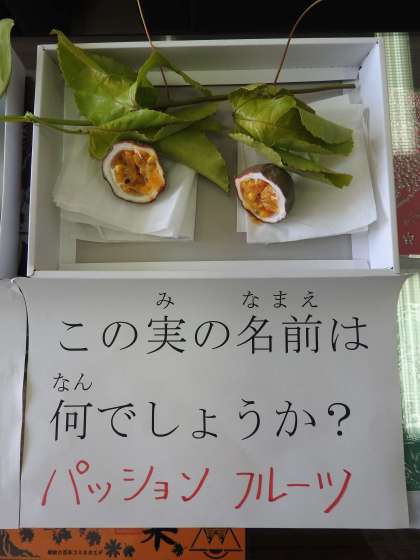 み なまえ
この実の名前は
なん
何でしょうか？
パッション フルーツ